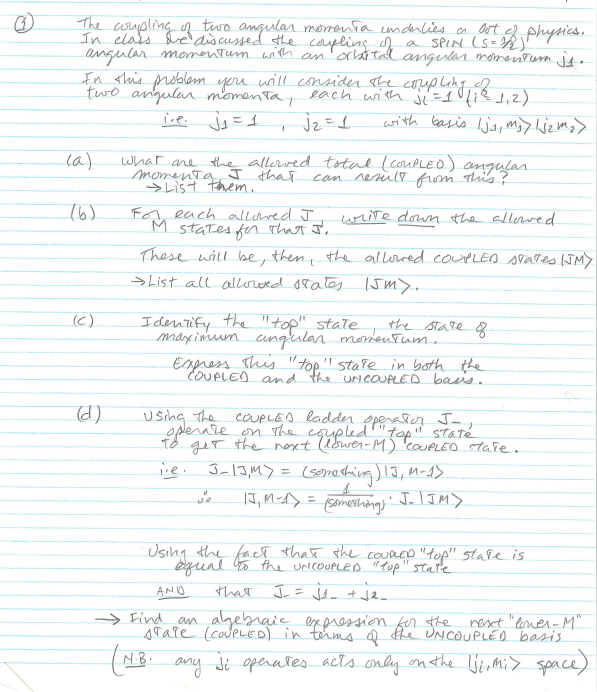 ① The coupling of two angular momenta underlies a lot of physics.
In class we discussed the coupling of a SPIN (S=½)
angular momentum with an orbital angular momentum j₁.
In this problem you will consider the coupling of
two angular momenta, each with jᵢ=1 (i=1,2)
i.e. j₁=1 , j₂=1 with basis |j₁,m₁⟩|j₂m₂⟩
(a) What are the allowed total (COUPLED) angular
momenta J that can result from this?
→List them.
(b) For each allowed J, write down the allowed
M states for that J.
These will be, then, the allowed COUPLED states |JM⟩
→List all allowed states |JM⟩.
(c) Identify the "top" state, the state of
maximum angular momentum.
Express this "top" state in both the
COUPLED and the UNCOUPLED basis.
(d) Using the COUPLED ladder operator J₋,
operate on the coupled "top" state
to get the next (lower-M) COUPLED state.
i.e. J₋|J,M⟩ = (something)|J,M-1⟩
so |J,M-1⟩ = 1/(something) · J₋|JM⟩
Using the fact that the COUPLED "top" state is
equal to the UNCOUPLED "top" state
AND that J₋ = j₁₋ + j₂₋
→ Find an algebraic expression for the next "lower-M"
state (COUPLED) in terms of the UNCOUPLED basis
(N.B. any jᵢ operates acts only on the |jᵢ,mᵢ⟩ space)